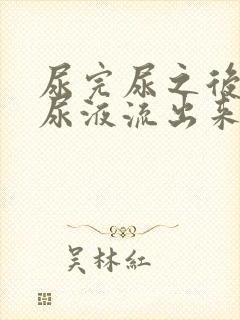 尿完尿之後
尿液流出来
吴林紅